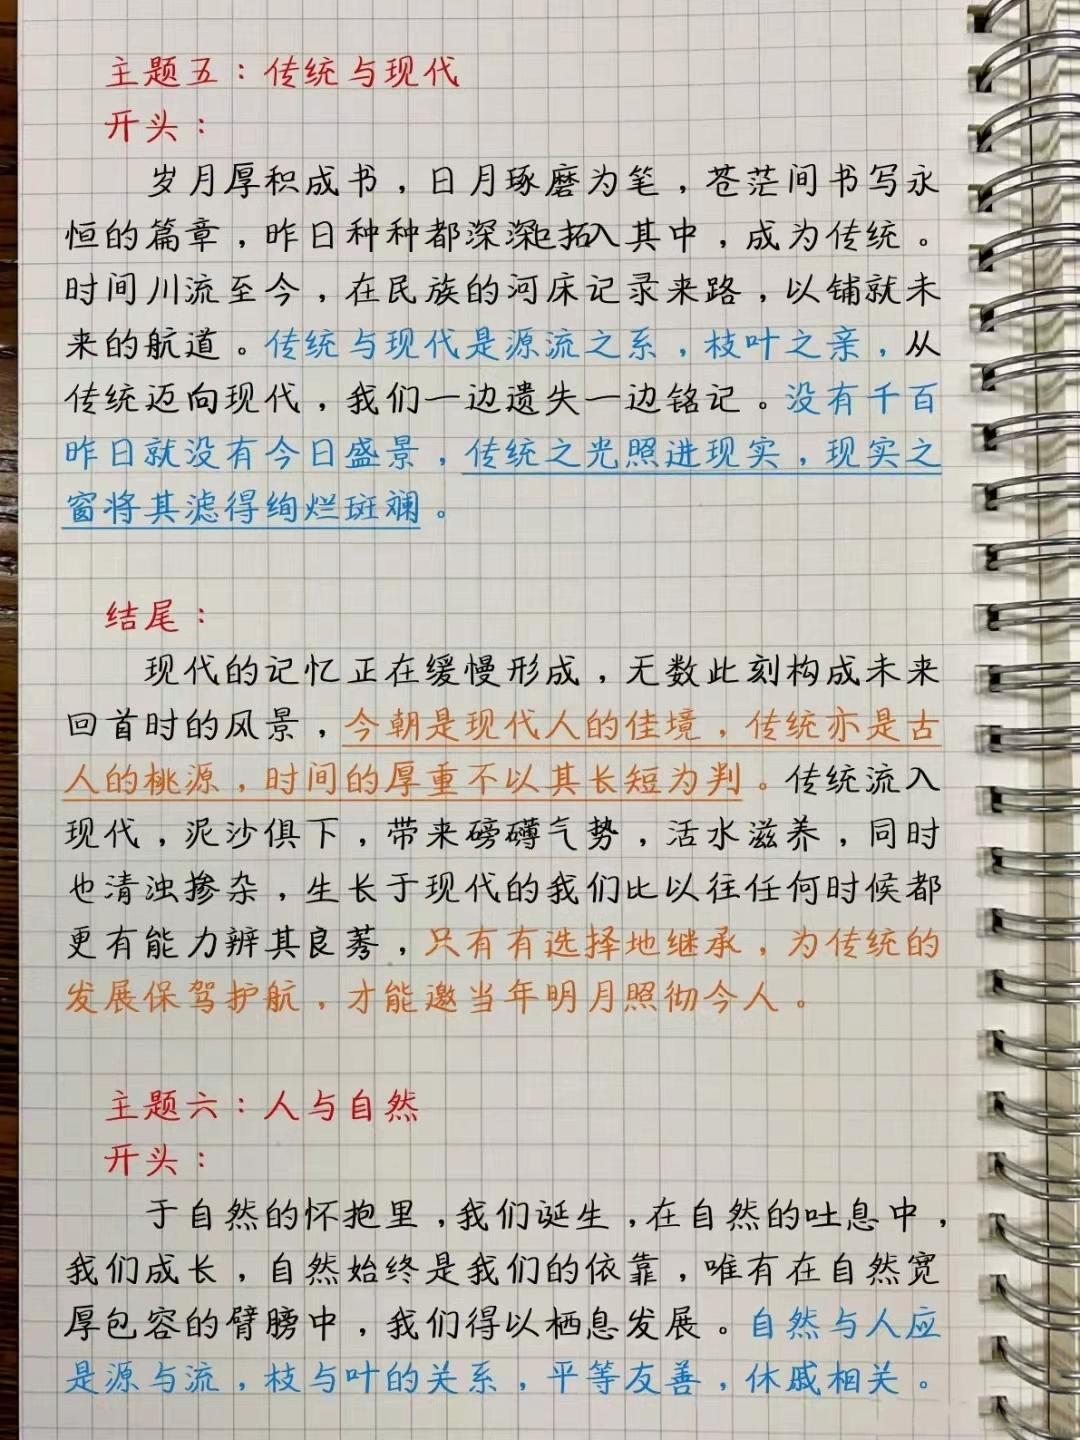 主题五：传统与现代
开头：
岁月厚积成书，日月琢磨为笔，苍茫间书写永
恒的篇章，昨日种种都深深拓入其中，成为传统。
时间川流至今，在民族的河床记录来路，以铺就未
来的航道。传统与现代是源流之系，枝叶之亲，从
传统迈向现代，我们一边遗失一边铭记。没有千百
昨日就没有今日盛景，传统之光照进现实，现实之
窗将其滤得绚烂斑斓。
结尾：
现代的记忆正在缓慢形成，无数此刻构成未来
回首时的风景，今朝是现代人的佳境，传统亦是古
人的桃源，时间的厚重不以其长短为判。传统流入
现代，泥沙俱下，带来磅礴气势，活水滋养，同时
也清浊掺杂，生长于现代的我们比以往任何时候都
更有能力辨其良莠，只有有选择地继承，为传统的
发展保驾护航，才能邀当年明月照彻今人。
主题六：人与自然
开头：
于自然的怀抱里，我们诞生，在自然的吐息中，
我们成长，自然始终是我们的依靠，唯有在自然宽
厚包容的臂膀中，我们得以栖息发展。自然与人应
是源与流，枝与叶的关系，平等友善，休戚相关。